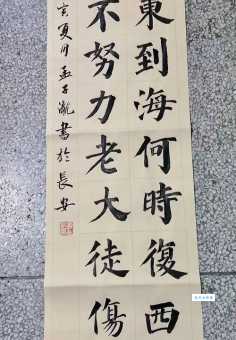 東到海何時復西
不努力老大徒傷
寅夏月孟子胤書於長安